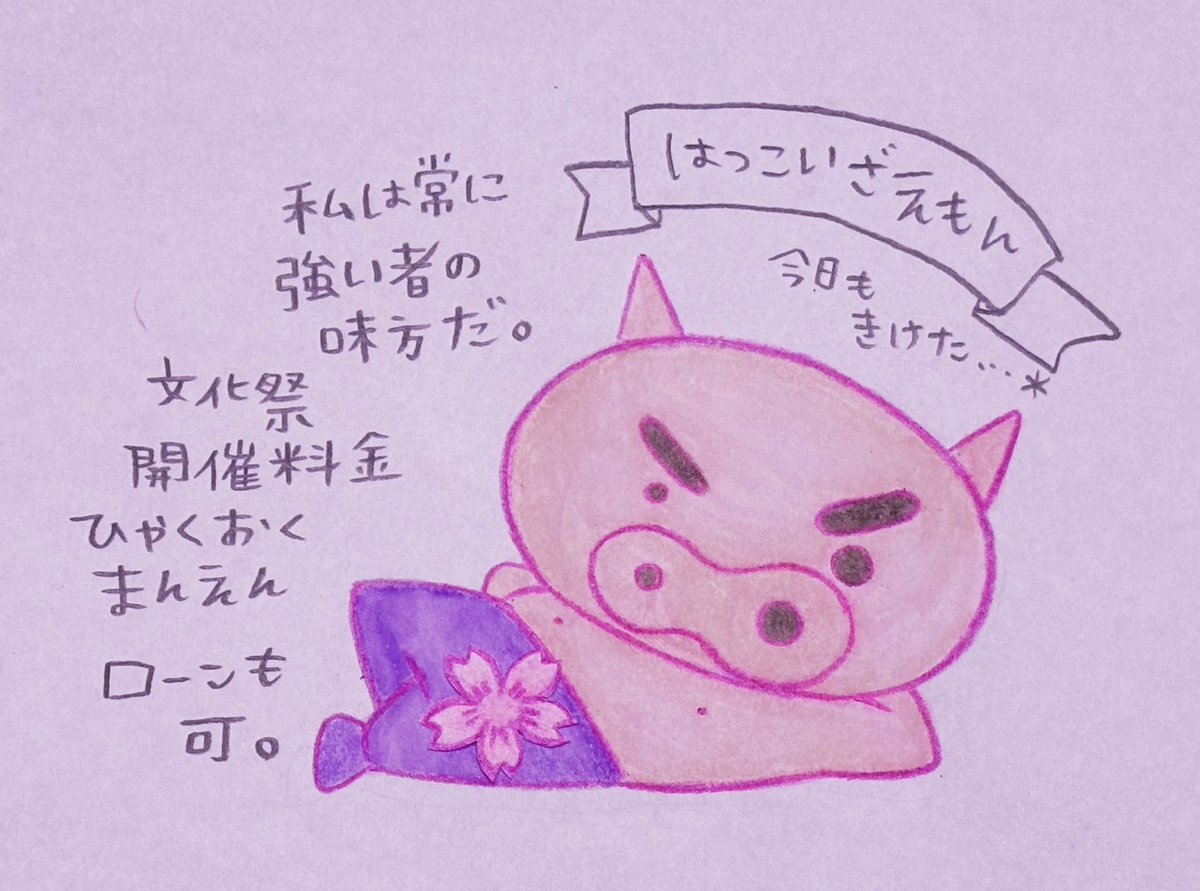 はっこいざえもん
今日も
きけた…*
私は常に
強い者の
味方だ。
文化祭
開催料金
ひゃくおく
まんえん
ローンも
可。